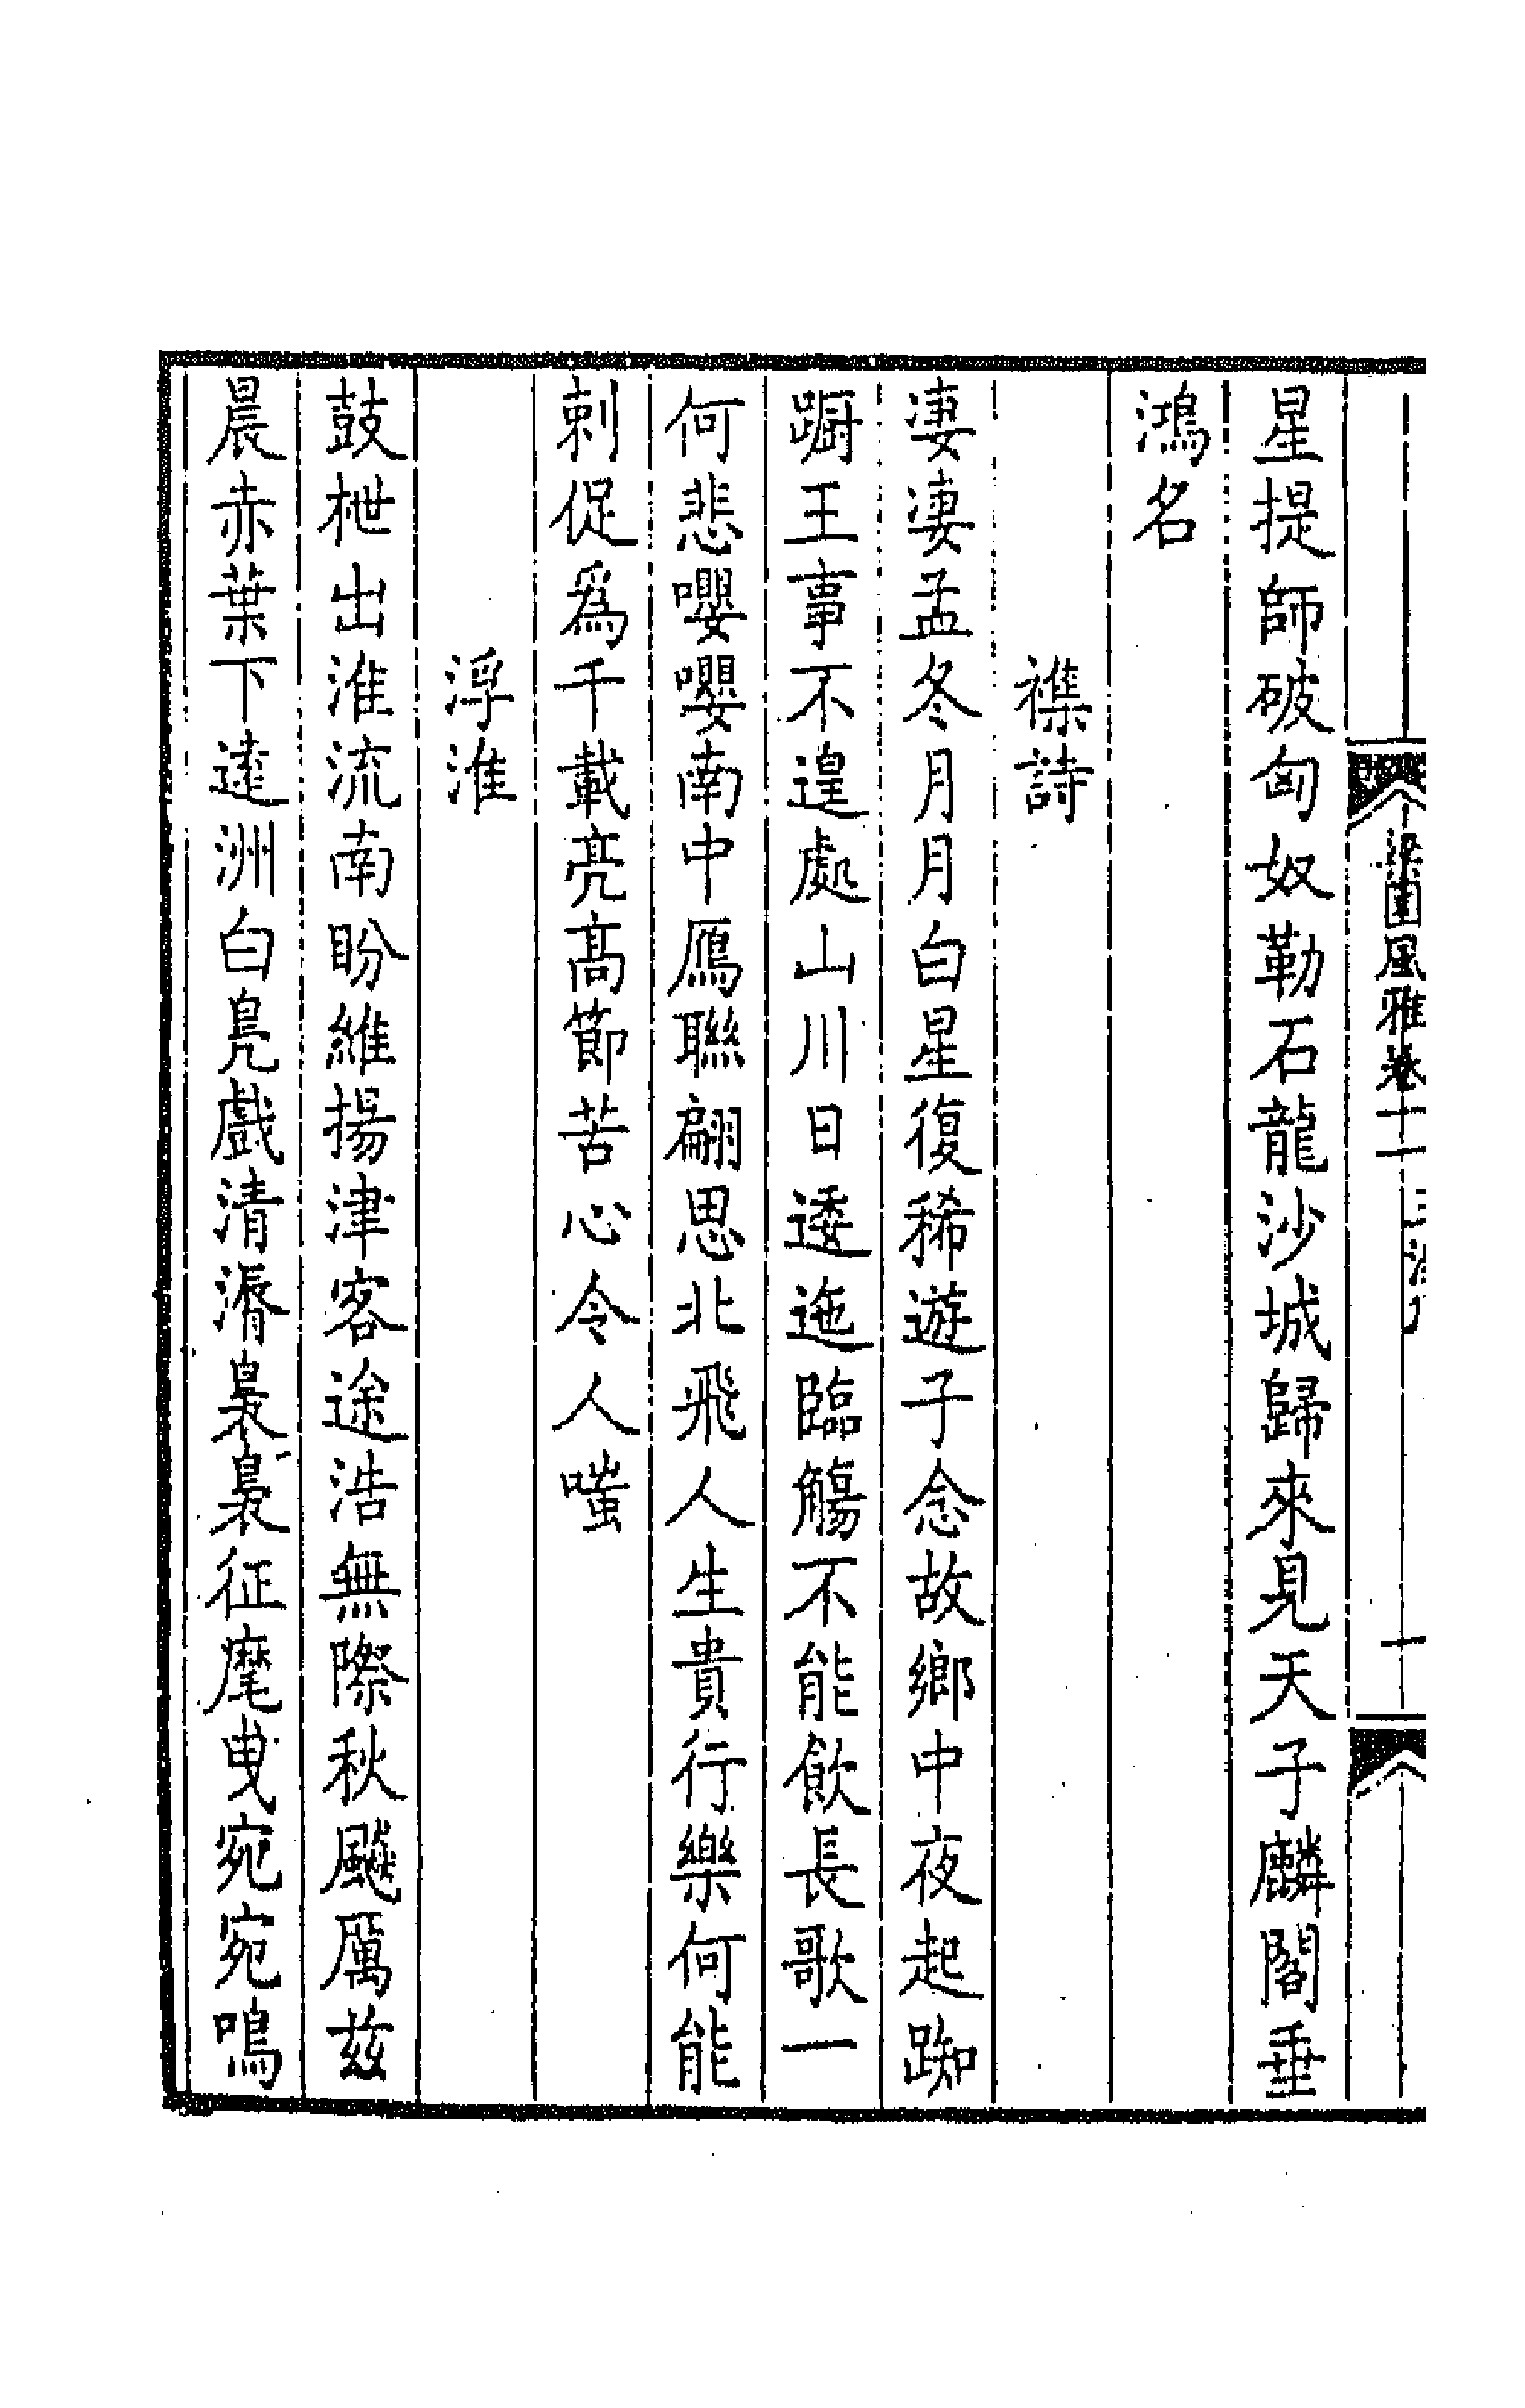 梁園風雅卷十一
十
星提師破匈奴勒石龍沙城歸來見天子麟閣垂
鴻名
襍詩
凄凄孟冬月月白星復稀遊子念故鄉中夜起踟
蹰王事不遑處山川日逶迤臨觴不能飲長歌一
何悲嚶嚶南中鴈聯翩思北飛人生貴行樂何能
刺促爲千載亮高節苦心令人嗤
浮淮
鼓枻出淮流南盼維揚津客途浩無際秋飈厲兹
晨赤葉下遠洲白鳧戲清漘裊裊征麾曳宛宛鳴